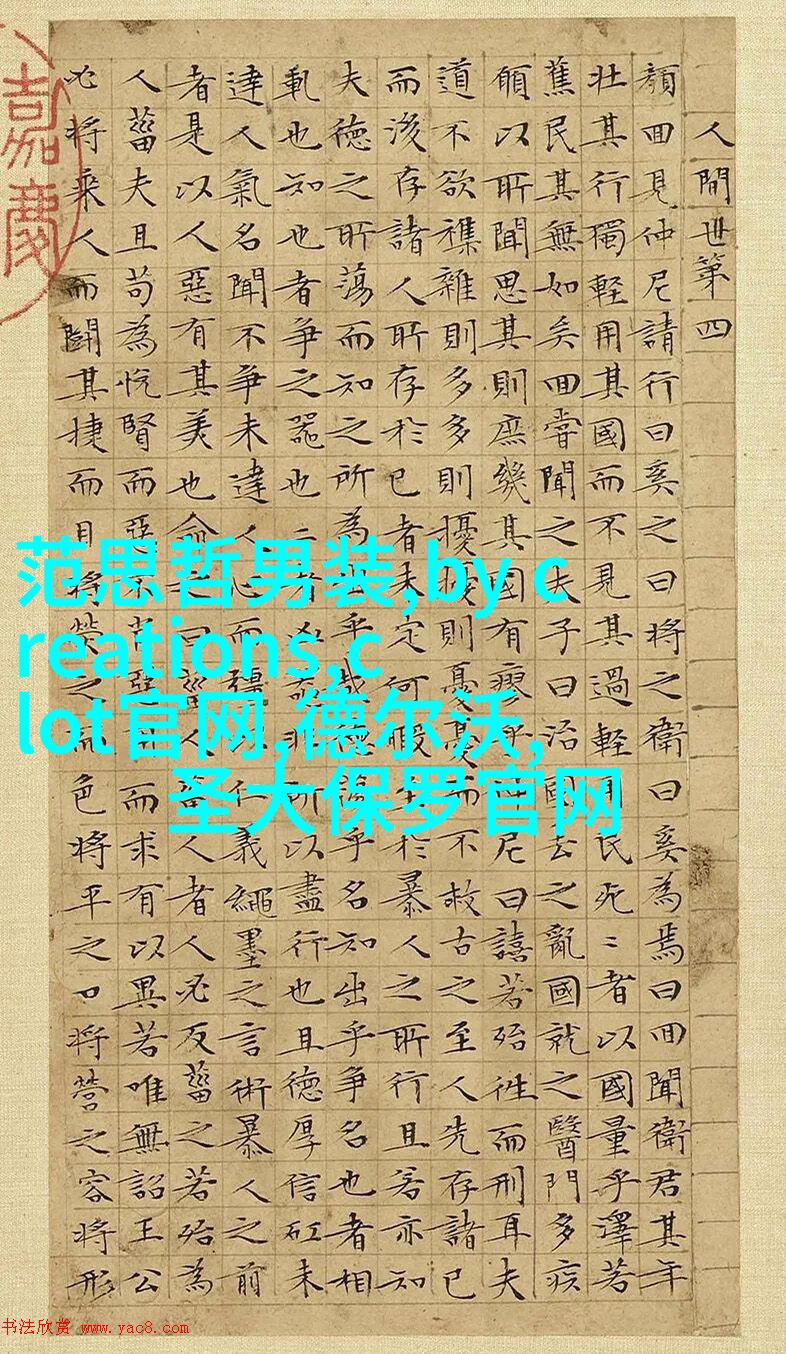 人間世第四
顏回見仲尼請行曰奚之曰將之衛曰奚為焉曰回聞衛君其年
壯其行獨輕用其國而不見其過輕用民死〻者以國量乎澤若
蕉民其無如矣回嘗聞之夫子曰治國去之亂國就之醫門多疾
願以所聞思其則庶幾其國有瘳乎仲尼曰譆若殆往而刑耳夫
道不欲襍雜則多多則擾擾則憂憂而不救古之至人先存諸已
而後存諸人所存於已者未定何暇至於暴人之所行且若亦知
夫德之所蕩而知之所為出乎哉德蕩乎名知出乎爭名也者相
軋也知也者爭之器也二者凶器非所以盡行也且德厚信矼未
達人氣名聞不爭未達人心而彊以仁義繩墨之言術暴人之前
者是以人惡有其美也命之曰菑人菑人者人必反菑之若殆為
人菑夫且苟為悅賢而惡不肖惡用而求有以異若唯無詔王公
必將乘人而鬭其捷而目將熒之而色將平之口將營之容將形
嘉慶
范思哲男装,by c
reations,c
lot官网,德尔沃,
圣大保罗官网
书法欣赏 www.yac8.com